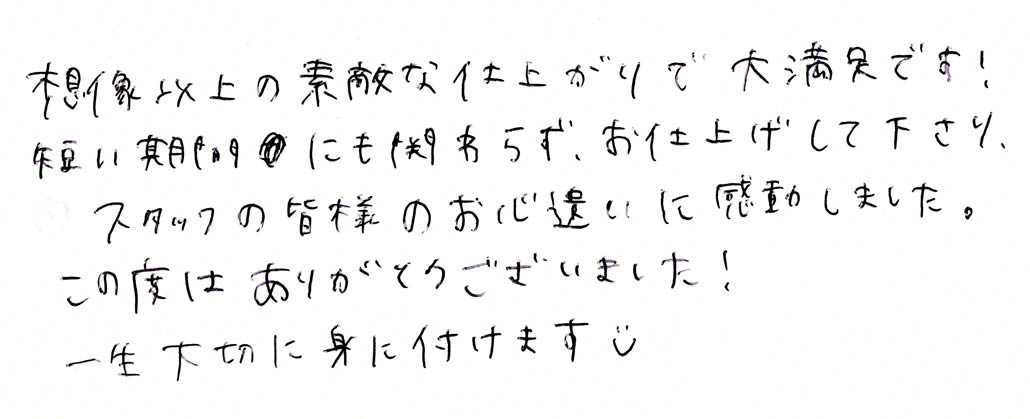 想像以上の素敵な仕上がりで大満足です！
短い期間にも関わらず、お仕上げして下さり、
スタッフの皆様のお心遣いに感動しました。
この度はありがとうございました！
一生大切に身に付けます☺